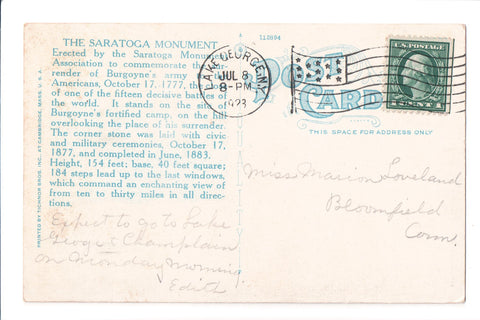 THE SARATOGA MONUMENT
Erected by the Saratoga Monument
Association to commemorate the
render of Burgoyne's army
Americans, October 17, 1777, the
of one of the fifteen decisive battles of
the world. It stands on the site of
Burgoyne's fortified camp, on the hill
overlooking the place of his surrender.
The corner stone was laid with civic
and military ceremonies, October 17,
1877, and completed in June, 1883.
Height, 154 feet; base, 40 feet square;
184 steps lead up to the last windows,
which command an enchanting view of
from ten to thirty miles in all direc-
tions.
Expect to go to Lake
George & Champlain
on Monday Morning
Edith
PRINTED BY TICHNOR BROS. INC. AT CAMBRIDGE, MASS. U. S. A.
112694
LAKE GEORGE N.Y.
JUL 8
8-PM
1923
POST
CARD
THIS SPACE FOR ADDRESS ONLY
U.S. POSTAGE
1 CENT 1
Miss Marion Loveland
Bloomfield
Conn.